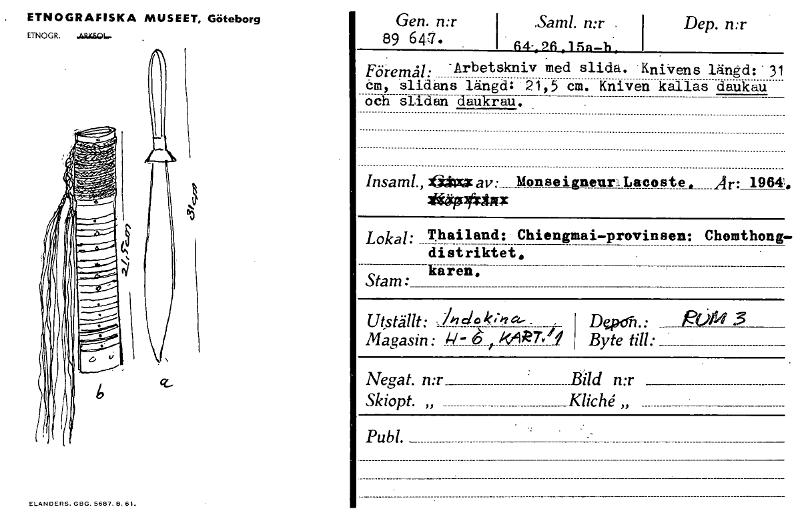 ETNOGRAFISKA MUSEET, Göteborg
ETNOGR. ARKEOL.
21,5cm
31cm
b a
ELANDERS, GBG. 5687. 8. 61.
Gen. n:r Saml. n:r Dep. n:r
89 647. 64.26.15a-b.
Föremål: Arbetskniv med slida. Knivens längd: 31
cm, slidans längd: 21,5 cm. Kniven kallas daukau
och slidan daukrau.
Insaml., av: Monseigneur Lacoste. År: 1964.
Lokal: Thailand; Chiengmai-provinsen; Chomthong-
distriktet.
Stam: karen.
Utställt: Indokina Depon.: RUM 3
Magasin: H-6, KART. 1 Byte till:
Negat. n:r Bild n:r
Skiopt. „ Kliché „
Publ.